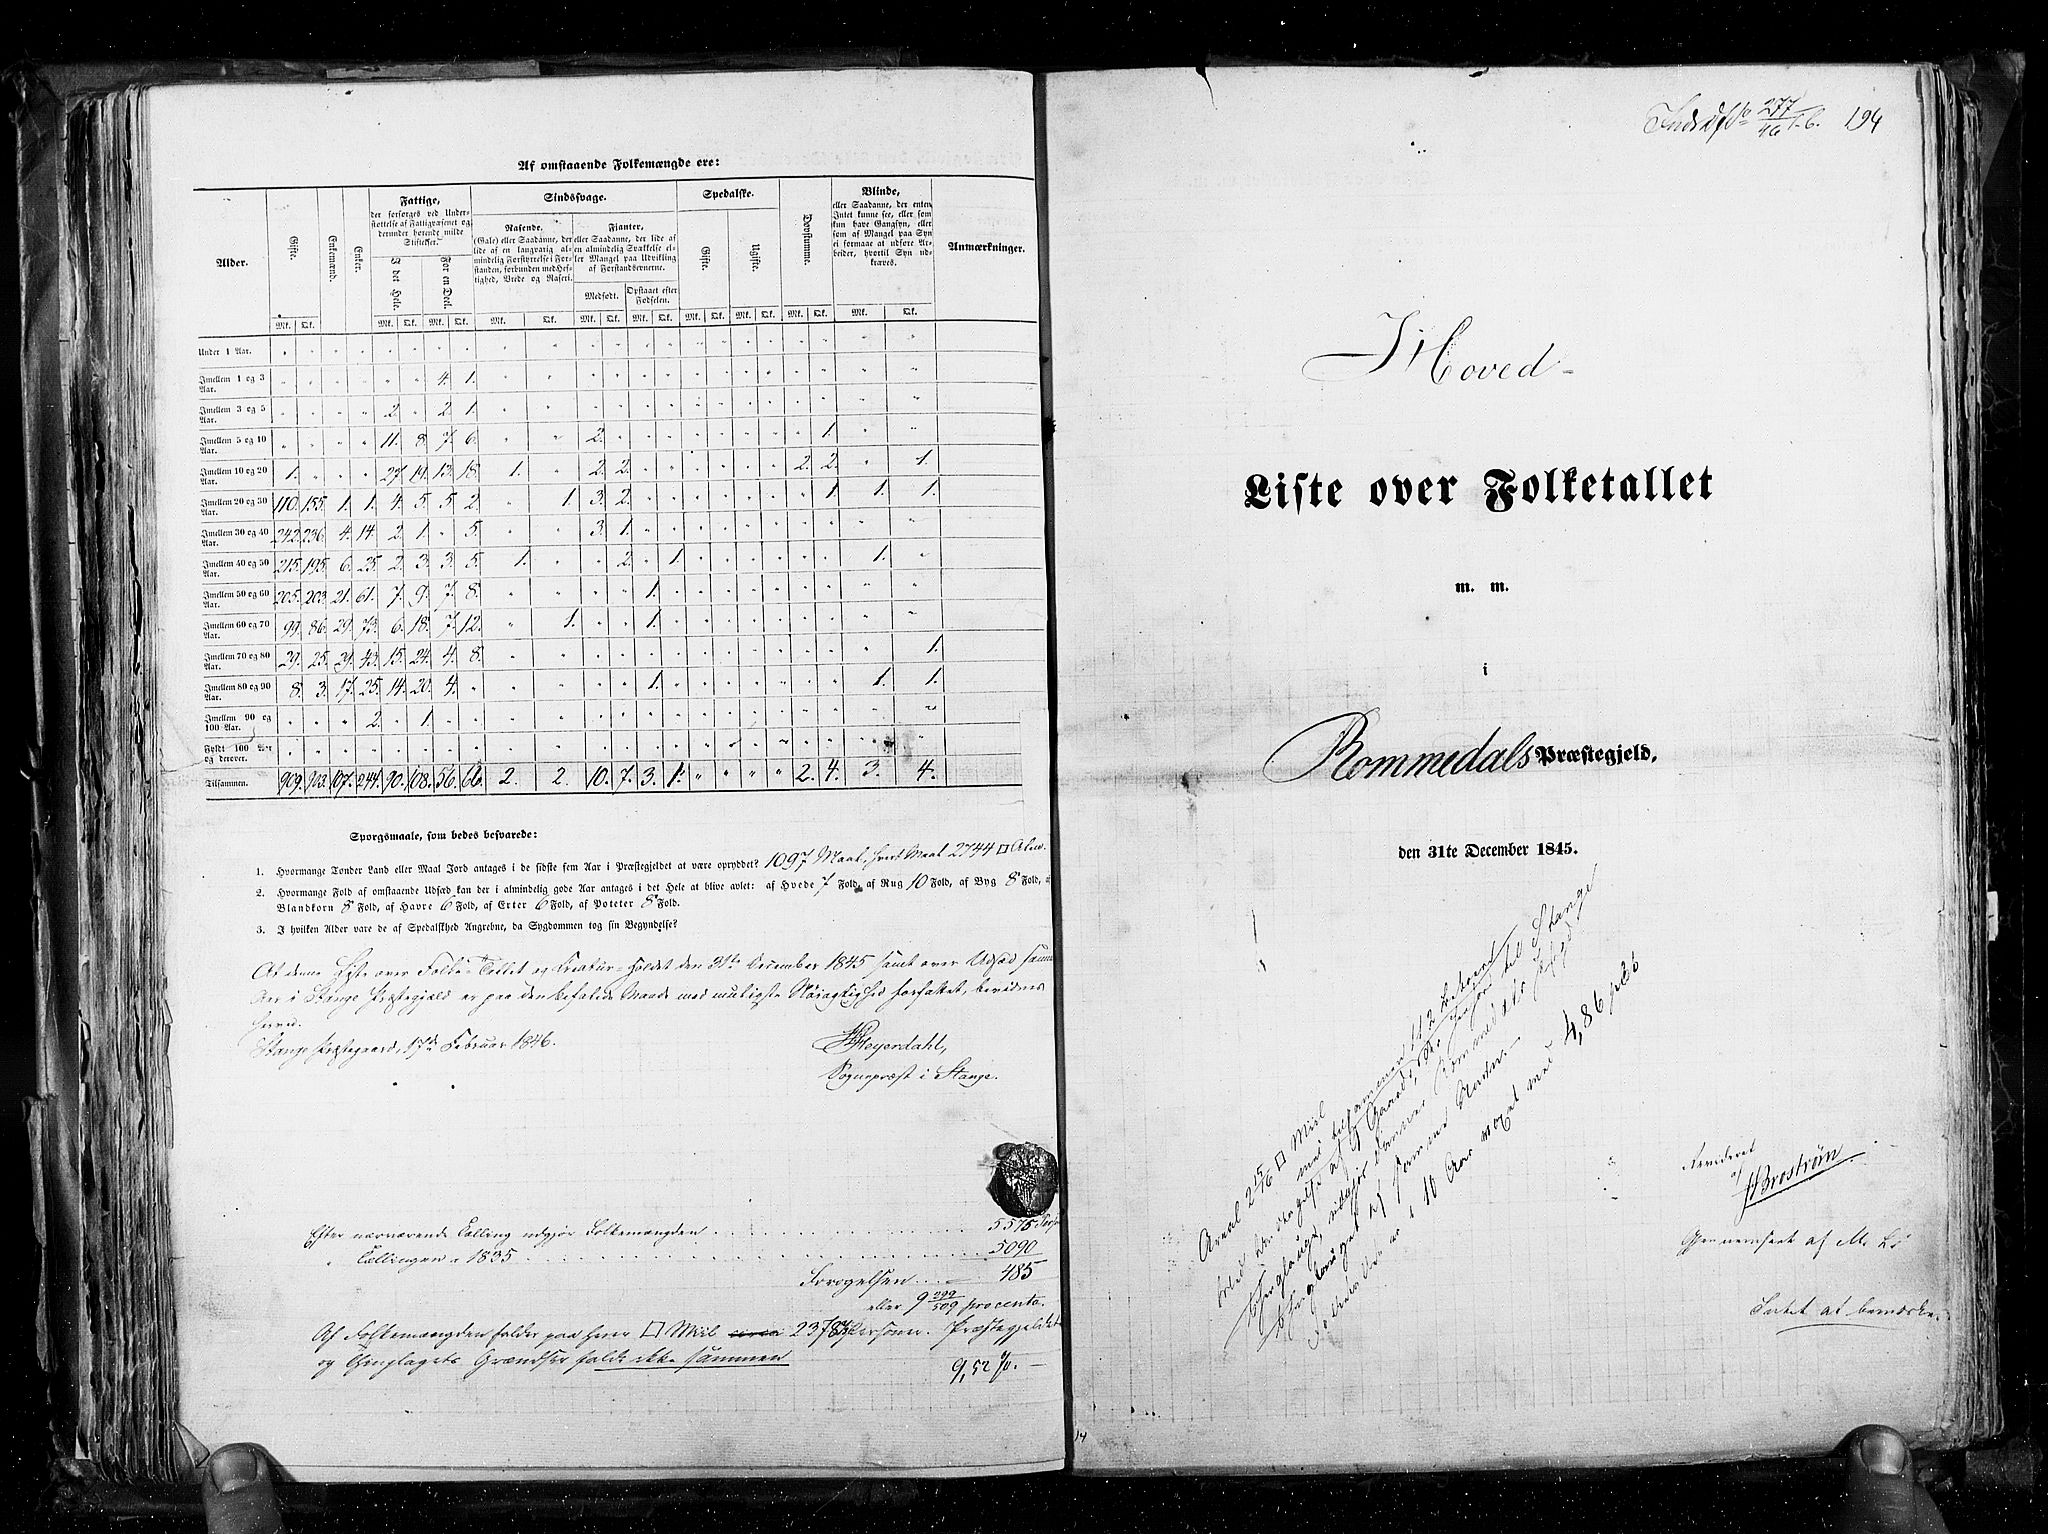 Af omstaaende Folkemængde ere:
Alder. Gifte. Enkemænd. Enker. Fattige, der forsorges ved Understøttelse af Fattigvæsenet og derunder hørende milde Stiftelser. Sindssvage. Spedalske. Døvstumme. Blinde, eller Saadanne, der enten Intet kunne see, eller som kun have Gangsyn, eller som af Mangel paa Syn ei formaae at udføre Arbeider, hvortil Syn udkræves. Anmærkninger.
I det Hele. For en Deel. Rasende. (Gale) eller Saadanne, der lide af en langvarig almindelig Forstyrrelse i Forstanden, forbunden med Heftighed, Vrede og Raseri. Fjanter, eller Saadanne, der lide af en almindelig Svækkelse eller Mangel paa Udvikling af Forstandsevnerne. Gifte. Ugifte.
Medfødt. Opstaaet efter Fødselen.
Mk. Qk. Mk. Qk. Mk. Qk. Mk. Qk. Mk. Qk. Mk. Qk. Mk. Qk. Mk. Qk. Mk. Qk. Mk. Qk.
Under 1 Aar. " " " " " " " " " " " " " " " " " " " " " "
Imellem 1 og 3 Aar. " " " " " " 4. 1. " " " " " " " " " " " " " "
Imellem 3 og 5 Aar. " " " " 2. " 2 1. " " " " " " " " " " " " " "
Imellem 5 og 10 Aar. " " " " 11. 8. 7. 6. " " 2. " " " " " " " " 1. " "
Imellem 10 og 20 Aar. 1. " " " 27. 19. 13. 18. 1. " 2. 2. " " " " " " 2. 2. " 1.
Imellem 20 og 30 Aar. 110. 155. 1. 1. 4. 5. 5. 2. " 1. 3. 2. " " " " " " " 1. 1. 1.
Imellem 30 og 40 Aar. 242. 236. 4. 14. 2. 1. " 5. " " 3. 1. " " " " " " " " " "
Imellem 40 og 50 Aar. 215. 195. 6. 25. 2. 3. 3. 5. 1. " " 2. " 1. " " " " " " 1. "
Imellem 50 og 60 Aar. 205. 203. 21. 61. 7. 9. 7. 8. " " " " 1. " " " " " " " " "
Imellem 60 og 70 Aar. 99. 86. 29. 73. 6. 18. 7. 12. " 1. " " 1. " " " " " " " " "
Imellem 70 og 80 Aar. 29. 25. 29. 43. 15. 24. 4. 8. " " " " " " " " " " " " " 1.
Imellem 80 og 90 Aar. 8. 3. 17. 25. 14. 20. 4. " " " " " 1. " " " " " " " 1. 1.
Imellem 90 og 100 Aar. " " " 2. " 1. " " " " " " " " " " " " " " " "
Fyldt 100 Aar og derover. " " " " " " " " " " " " " " " " " " " " " "
Tilsammen. 909. 903. 107. 244. 90. 108. 56. 66. 2. 2. 10. 7. 3. 1. " " " " 2. 4. 3. 4.
Sporgsmaale, som bedes besvarede:
1. Hvormange Tønder Land eller Maal Jord antages i de sidste fem Aar i Præstegjeldet at være opryddet? 1097 Maal, hvert Maal 2744 □ Alne.
2. Hvormange Fold af omstaaende Udsæd kan der i almindelig gode Aar antages i det Hele at blive avlet: af Hvede 7 Fold, af Rug 10 Fold, af Byg 8 Fold, af
Blandkorn 8 Fold, af Havre 6 Fold, af Erter 6 Fold, af Poteter 8 Fold.
3. I hvilken Alder vare de af Spedalskhed Angrebne, da Sygdommen tog sin Begyndelse?
At denne Liste over Folke-Tallet og Creatur-Holdet den 31te December 1845 samt over Udsæd samme
Aar i Stange Præstegjæld er paa den befalede Maade med muligste Nøiagtighed forfattet, bevidnes
herved.
Stange Præstegaard, 17de Februar 1846.
Heyerdahl,
Sognepræst i Stange.
Efter nærværende Tælling udgjør Folkemængden 5575 Perso
" Tællingen " 1835 5090
Forøgelsen 485
eller 9 299/509 procento.
Af Folkemængden falder paa hver □ Miil Personer. Præstegjeldets
og Thinglagets Grændser falde ikke sammen
9,52 %.
Indk No 277/46 T. b. 194
Hoved-
Liste over Folketallet
m. m.
i
Rommedals Præstegjeld,
den 31te December 1845.
Areal 2 5/16 □ Miil
i 10 Aar med 4,86 pCt
Revideret
af
Broström
Gjennemseet af M. L
Intet at bemærke.
14